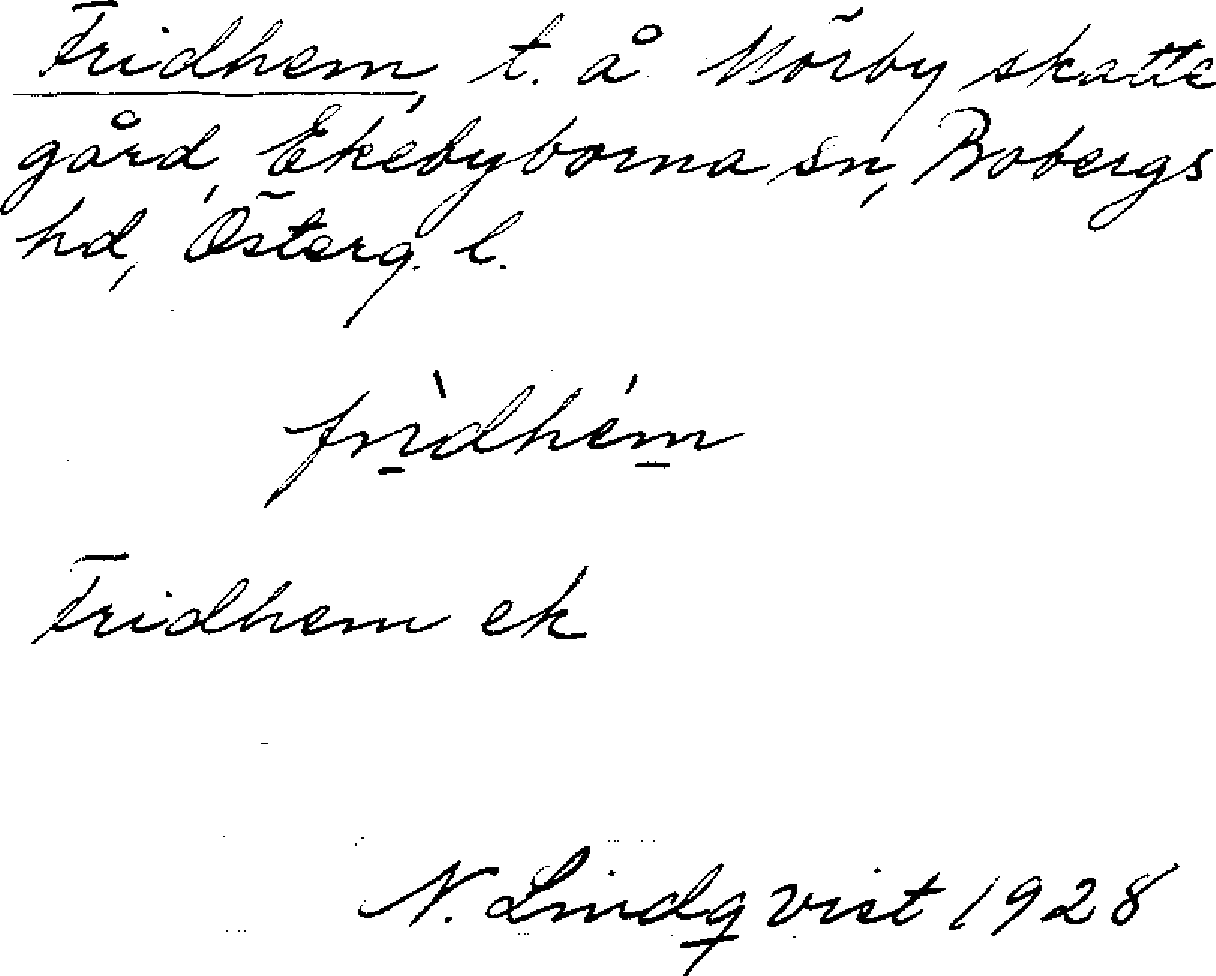 Fridhem, t. å Mörby skatte
gård, Ekebyborna sn, Bobergs
hd, Österg. l.
frìdhém
Fridhem ek
N. Lindqvist 1928